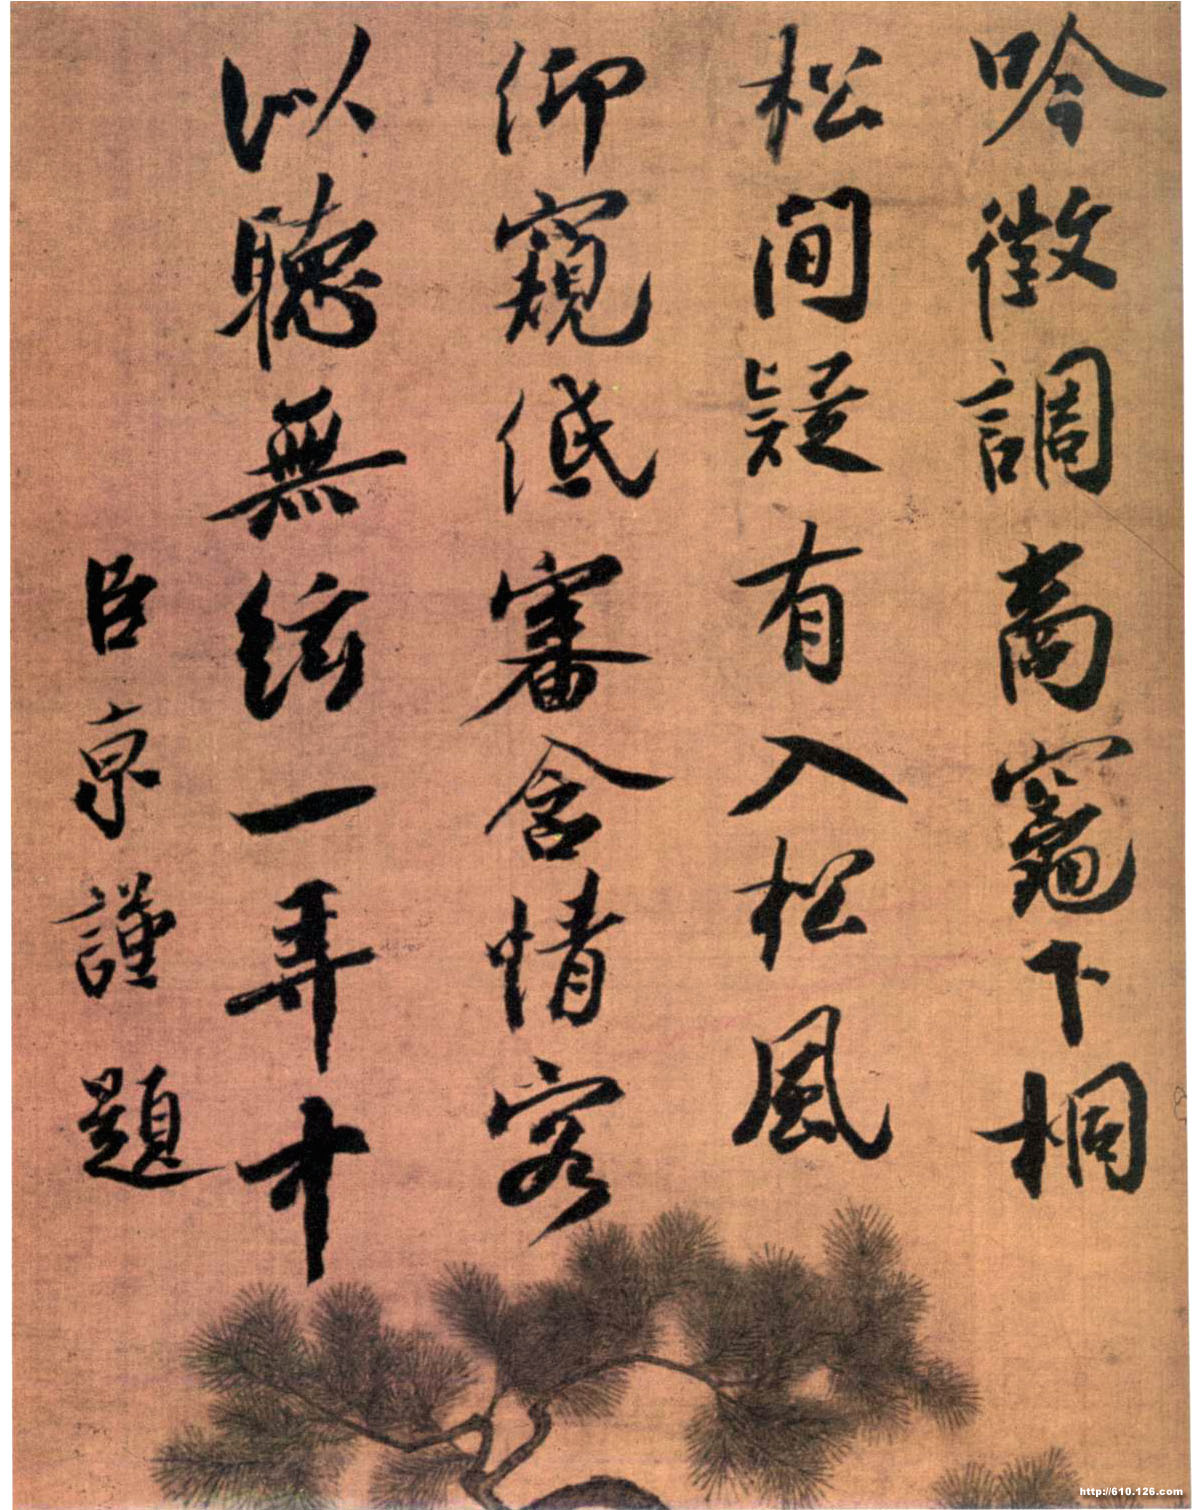 吟徵調商竈下桐
松間疑有入松風
仰窺低審含情客
以聽無絃一弄中
臣京謹題
http://610.126.com